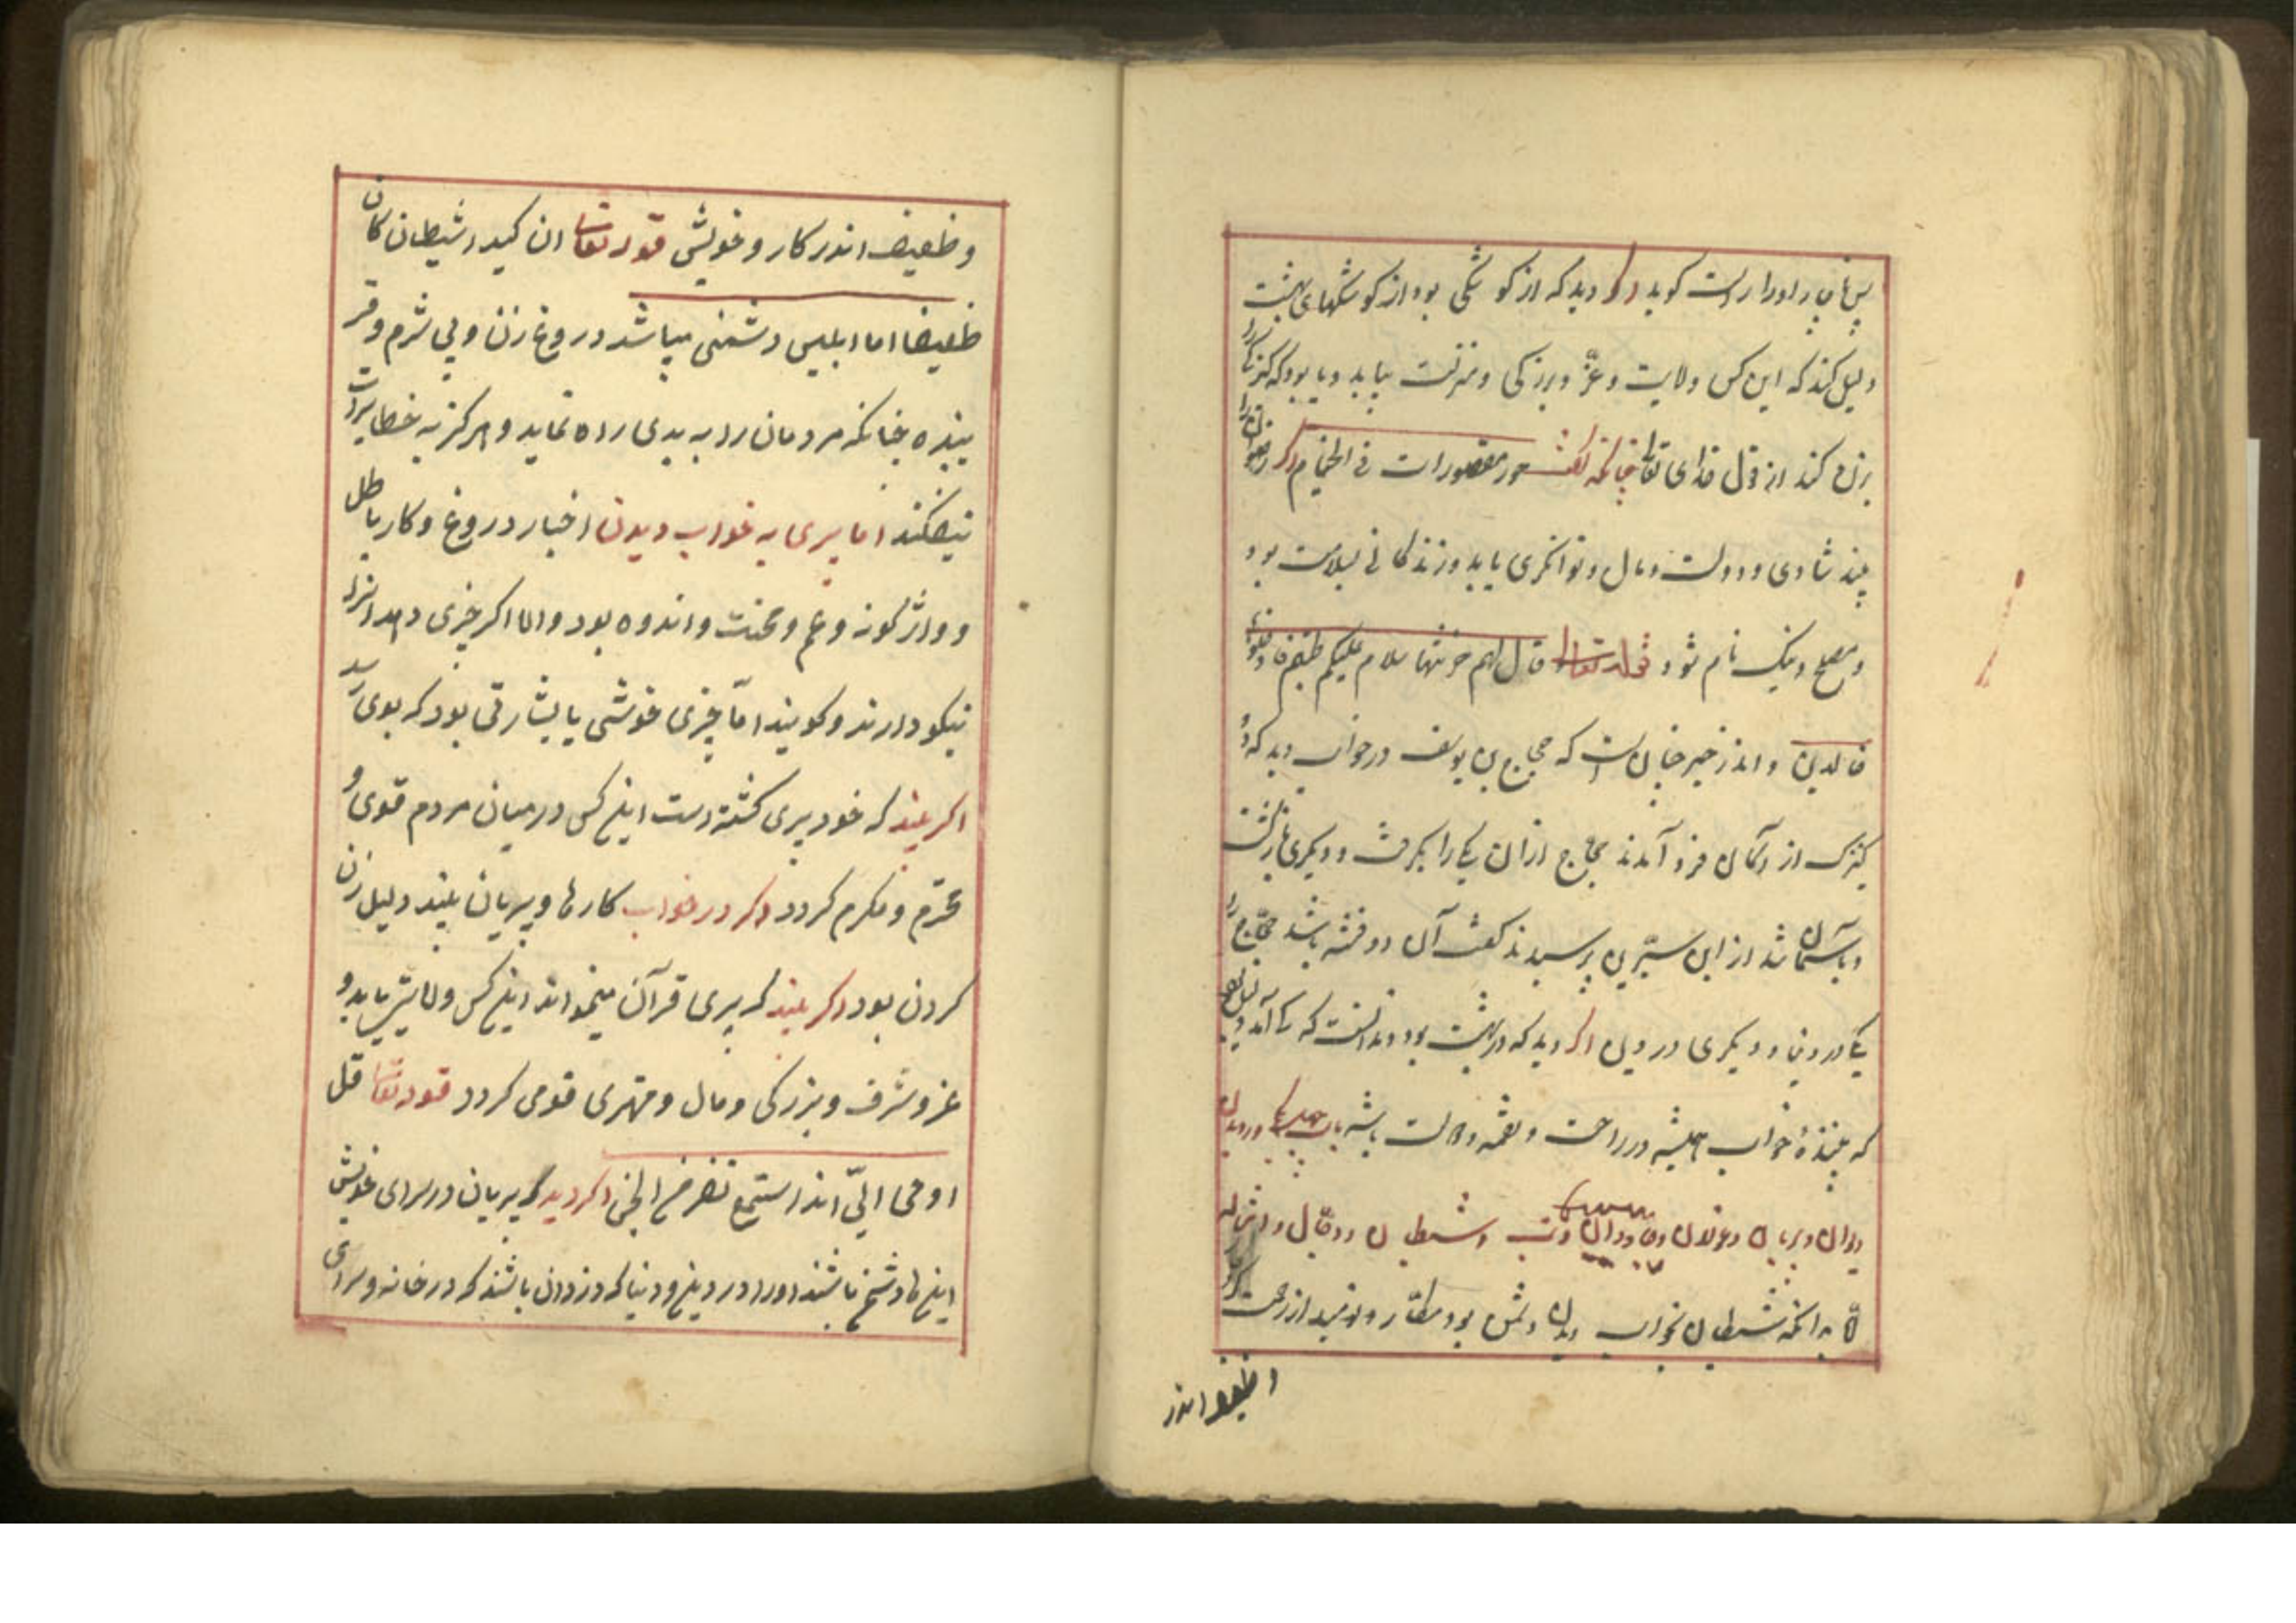 دلیل کند که این کس ولایت و عزّ و بزرکی و منزلت بیابد و یا بود که کنیزکی را
بزنی کند از قول خدای تعالی چنانکه کفت حور مقصورات فی الخیام اکر رضوان را
بیند شادی و دولت و مال و توانکری یابد و زندکانی بسلامت بود
و مصلح و نیک نام شود قوله تعالی قال لهم خزنتها سلام علیکم طبتم فادخلوها
خالدین و اندر خبر چنان است که حجاج بن یوسف در خواب دید که دو
کنیزک از آسمان فرود آمدند حجاج ازان یکی را بکرفت و دیکری باز کشت
و بآسمان شد از ابن سیرین پرسیدند کفت آن دو فتنه باشد حجاج را
یکی در دین و دیکری در ویل اکر دید که در بهشت بود و ندانست که کی آمد دلیل بود
که بینندهٔ خواب همیشه در راحت و نعمه و باشد باب چهل در دیدن
دیوان و پریان و غولان و جادوان و شیطان و دجال و
بدانکه شیطان بخواب دیدن دشمن بود مکار و نومید از رحمت
وظعیف اندر
وظعیف اندر کار و خویش قوله تعالی ان کید الشیطان کان
ظعیفا اما ابلیس دشمنی میباشد دروغ زن و بی شرم و فر
یبنده چنانکه مردمان را به بدی راه نماید و هرکز به خطا برات
نیفکند اما پری به خواب دیدن اخبار دروغ و کار باطل
و واژکونه و غم و محنت و اندوه بود والا اکر چیزی دهد انرا
نیکو دارند و کویند امّا چیزی خوشی یا بشارتی بود که بوی رسد
اکر بیند که خود پری کشته است اینکس در میان مردم قوی و
محترم و مکرم کردد اکر در خواب کارها و پریان بیند دلیل زن
کردن بود اکر بیند که پری قرآن میخواند اینکس ولایتی یابد و
عز و شرف و بزرکی و مال و مهتری قومی کردد قوله تعالی قل
اوحی الیّ انه استمع نفر من الجن اکر دید که پریان در سرای خویش
اینها دشمن باشند اورا در دین و دنیا که دزدان باشند که در خانه و سرای